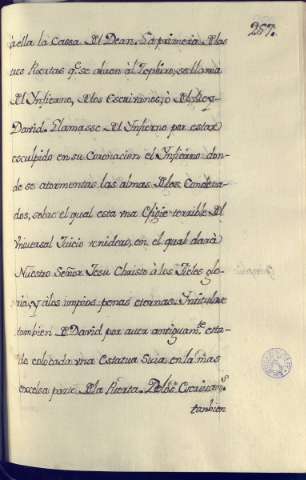 267.
à ella la Cassa del Dean. La primera de las
tres Puertas q.e se abren àl Zephiro, se llama
del Infierno, de los Escrivanos, ò del Rey
David. Llamasse del Infierno por estar
esculpido en su Coronacion el Infierno don-
de se atormentan las almas de los Condena-
dos, sobre el qual esta vna Efigie terrible del
Vniversal Juicio venidero, en el qual darà
Nuestro Señor Jesu Christo à los Fieles glo-
ria, y à los impios penas eternas. Intitulase
tambien de David por aver antiguam.te esta-
do colocada vna Estatua Suia en la mas
excelsa parte de la Puerta. De los Escrivan.s
tanbien